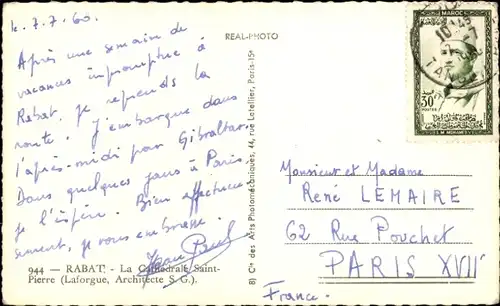 le 7.7.60.
Après une semaine de
vacances impromptue à
Rabat, je reprends la
route. J'embarque dans
l'après-midi pour Gibraltar.
Dans quelques jours à Paris
je l'espère. Bien affectueu
sement, je vous embrasse.
Jean Paul
944 — RABAT. - La Cathédrale Saint-
Pierre (Laforgue, Architecte S. G.).
REAL-PHOTO
8) Cie des Arts Photomécaniques, 44, rue Letellier, Paris-15e
MAROC
10 45
-7
TAN
30F
POSTES
Monsieur et Madame
René LEMAIRE
62 Rue Pouchet
PARIS XVIIe
France.